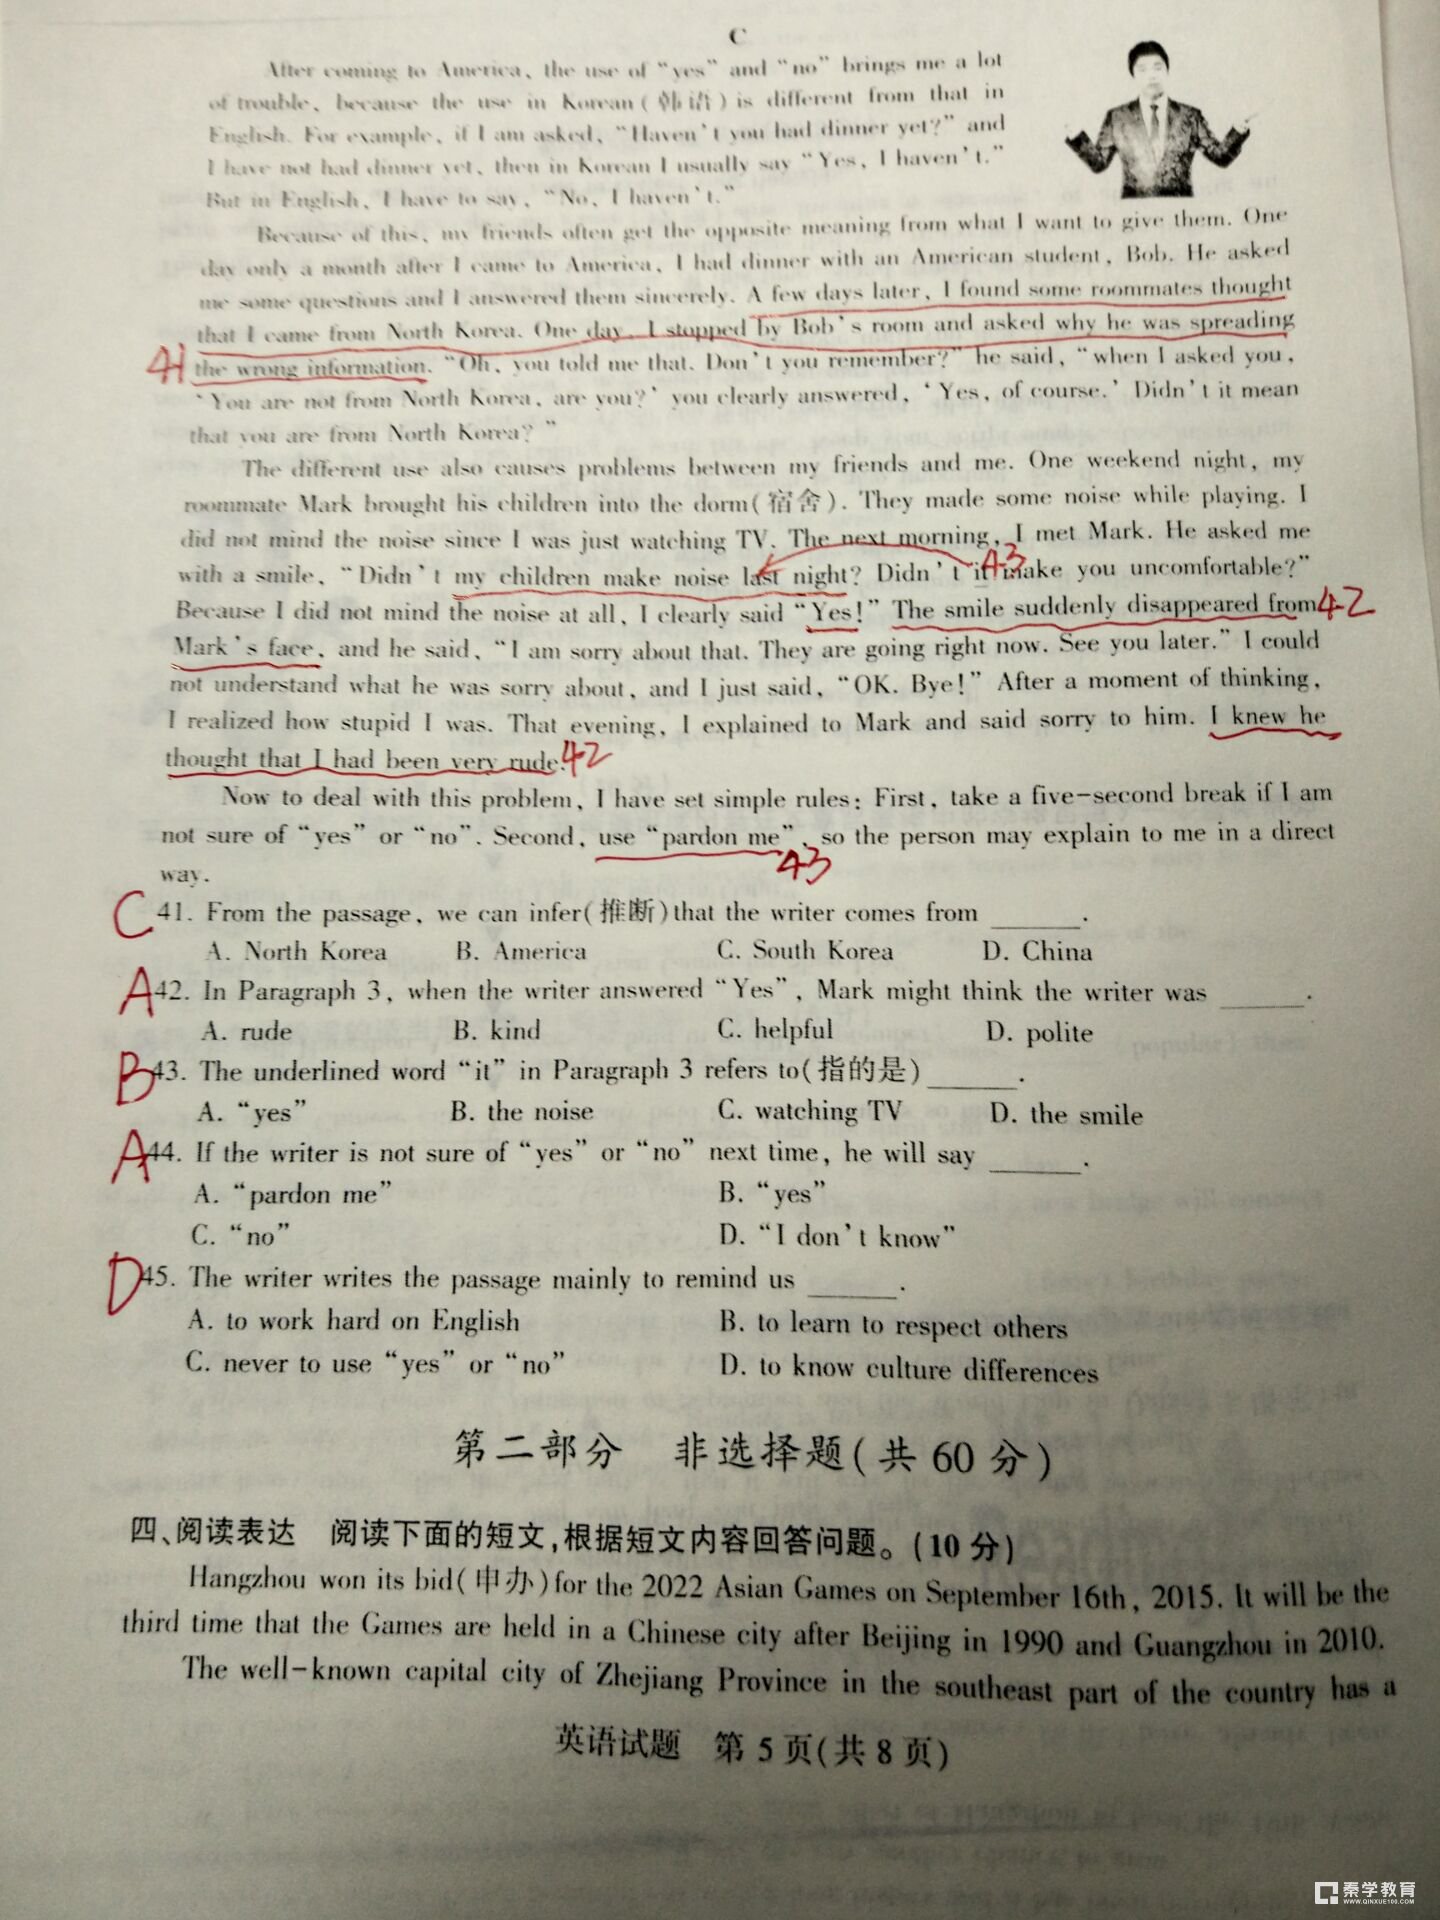 C
After coming to America, the use of “yes” and “no” brings me a lot
of trouble, because the use in Korean(韩语) is different from that in
English. For example, if I am asked, “Haven't you had dinner yet?” and
I have not had dinner yet, then in Korean I usually say “Yes, I haven't.”
But in English, I have to say, “No, I haven't.”
Because of this, my friends often get the opposite meaning from what I want to give them. One
day only a month after I came to America, I had dinner with an American student, Bob. He asked
me some questions and I answered them sincerely. A few days later, I found some roommates thought
that I came from North Korea. One day, I stopped by Bob's room and asked why he was spreading
41 the wrong information. “Oh, you told me that. Don't you remember?” he said, “when I asked you,
‘You are not from North Korea, are you?’ you clearly answered, ‘Yes, of course.’ Didn't it mean
that you are from North Korea?”
The different use also causes problems between my friends and me. One weekend night, my
roommate Mark brought his children into the dorm(宿舍). They made some noise while playing. I
did not mind the noise since I was just watching TV. The next morning, I met Mark. He asked me
43
with a smile, “Didn't my children make noise last night? Didn't it make you uncomfortable?”
Because I did not mind the noise at all, I clearly said “Yes!” The smile suddenly disappeared from 42
Mark's face, and he said, “I am sorry about that. They are going right now. See you later.” I could
not understand what he was sorry about, and I just said, “OK. Bye!” After a moment of thinking,
I realized how stupid I was. That evening, I explained to Mark and said sorry to him. I knew he
thought that I had been very rude. 42
Now to deal with this problem, I have set simple rules: First, take a five-second break if I am
not sure of “yes” or “no”. Second, use “pardon me”, so the person may explain to me in a direct
43
way.
C 41. From the passage, we can infer(推断)that the writer comes from ______.
A. North Korea B. America C. South Korea D. China
A 42. In Paragraph 3, when the writer answered “Yes”, Mark might think the writer was ______.
A. rude B. kind C. helpful D. polite
B 43. The underlined word “it” in Paragraph 3 refers to(指的是)______.
A. “yes” B. the noise C. watching TV D. the smile
A 44. If the writer is not sure of “yes” or “no” next time, he will say ______.
A. “pardon me” B. “yes”
C. “no” D. “I don't know”
D 45. The writer writes the passage mainly to remind us ______.
A. to work hard on English B. to learn to respect others
C. never to use “yes” or “no” D. to know culture differences
第二部分 非选择题(共60分)
四、阅读表达 阅读下面的短文,根据短文内容回答问题。(10分)
Hangzhou won its bid(申办)for the 2022 Asian Games on September 16th, 2015. It will be the
third time that the Games are held in a Chinese city after Beijing in 1990 and Guangzhou in 2010.
The well-known capital city of Zhejiang Province in the southeast part of the country has a
英语试题 第5页(共8页)
秦学教育
WWW.QINXUE100.COM